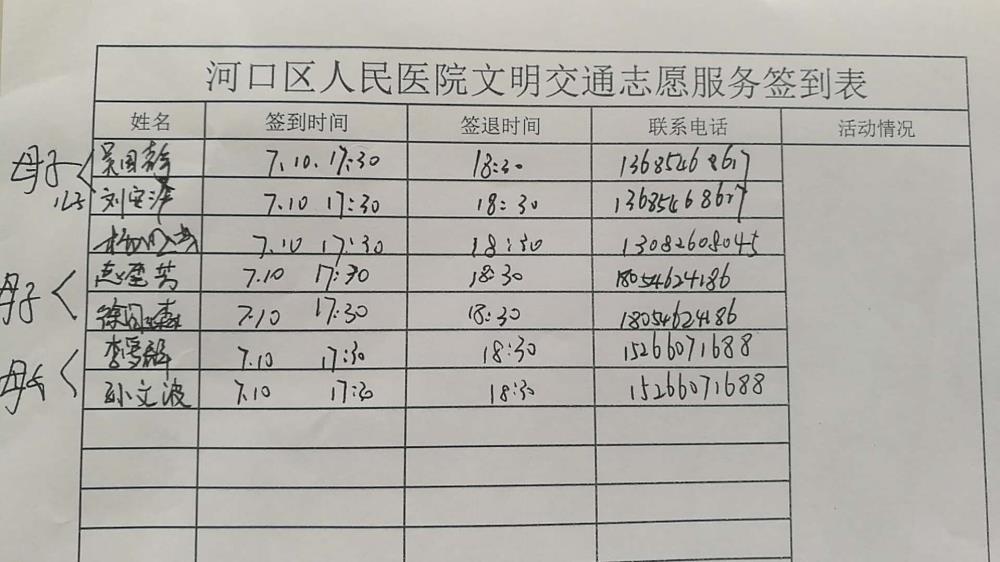 河口区人民医院文明交通志愿服务签到表
姓名 签到时间 签退时间 联系电话 活动情况
母子 7.10. 17:30 18:30 13685468617
刘安泽 7.10 17:30 18:30 13685468617
7.10 17:30 18:30 13082608045
母子 7.10 17:30 18:30 18054624186
7.10 17:30 18:30 18054624186
李雪 7.10 17:30 18:30 15266071688
孙文波 7.10 17:30 18:30 15266071688